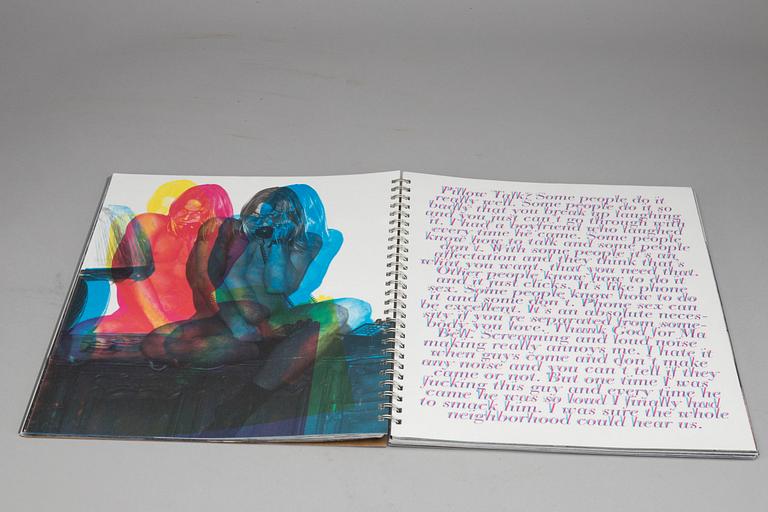 Pillow Talk? Some people do it
really well. Some people do it so
badly that you break up laughing
and you just can't go through with
it. I had a boyfriend who laughed
every time he came. Some people
know how to talk and some people
don't. With some people it's an
expectation and they think that's
what you want, that you need that.
Other people know how to do it
and it just clicks. It's like phone
sex. Some people know how to do
it and some don't. Phone sex can
be excellent. It's an absolute neces-
sity if you're separated from some-
body you love. Thank God for Ma
Bell. Screaming and loud noise
making really annoys me. I hate it
when guys come and don't make
any noise and you can't tell if they
came or not. But one time I was
fucking this guy and every time he
came he was so loud I finally had
to smack him. I was sure the whole
neighborhood could hear us.